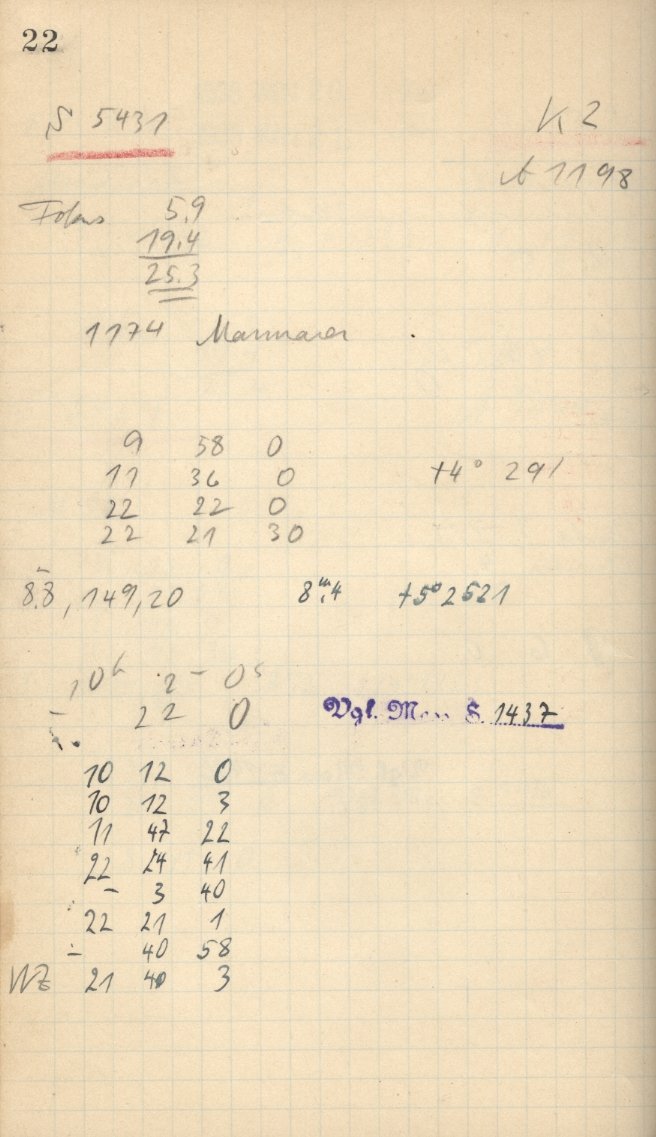 22
S 5431 K 2
A 1198
Fokus 5.9
19.4
25.3
1174 Marmara
9 58 0
11 36 0 +4° 291
22 22 0
22 21 30
8.8, 149, 20 8ᵐ.4 +5° 2521
10ʰ 2ᵐ 0ˢ
– 22 0 Vgl. S. 1437
10 12 0
10 12 3
11 47 22
22 24 41
– 3 40
22 21 1
– 40 58
WZ 21 40 3